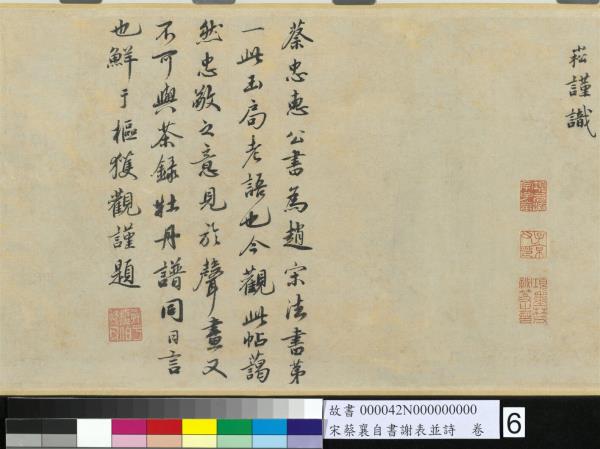 崧謹識
蔡忠惠公書為趙宋法書第
一此玉局老語也今觀此帖藹
然忠敬之意見於聲畫又
不可與茶録牡丹譜同日言
也鮮于樞獲觀謹題
故書 000042N000000000
宋蔡襄自書謝表並詩 卷
6